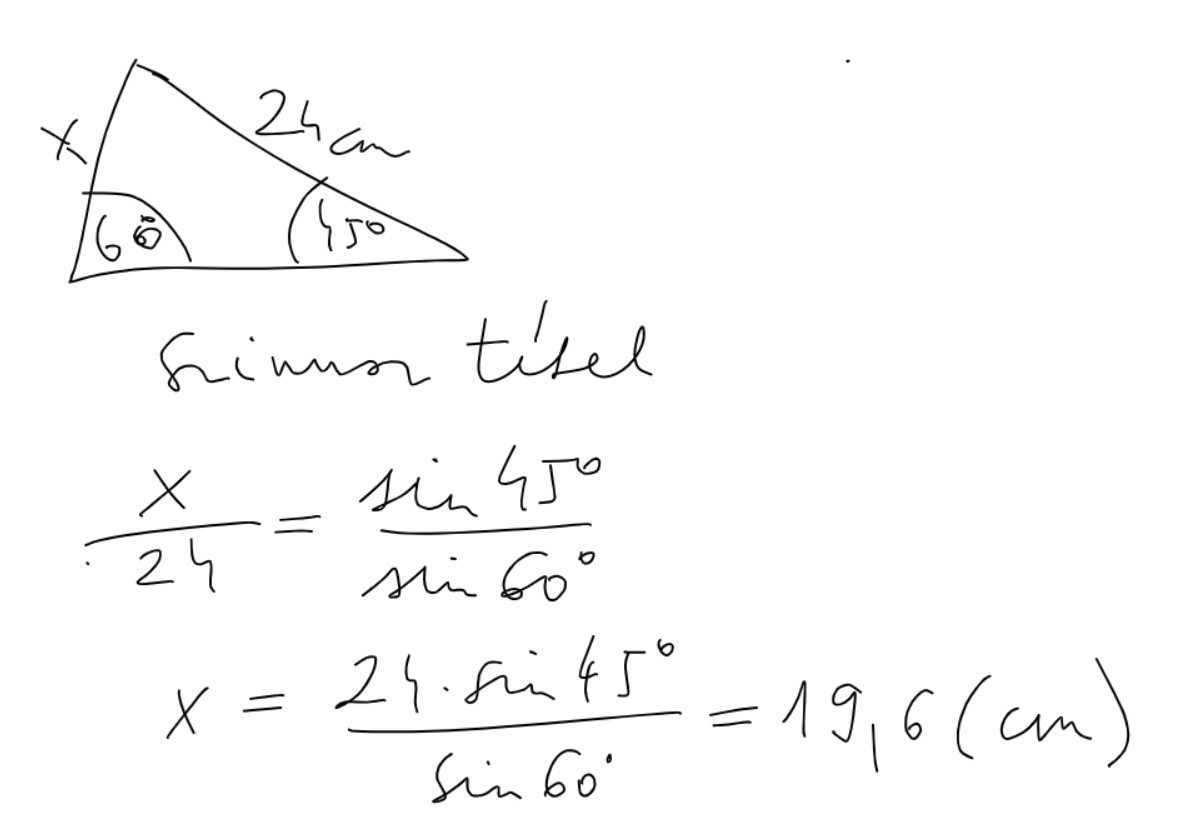 x
24 cm
60°
45°
Szinusz tétel
x/24 = sin 45°/sin 60°
x = 24 · sin 45°/sin 60° = 19,6 (cm)